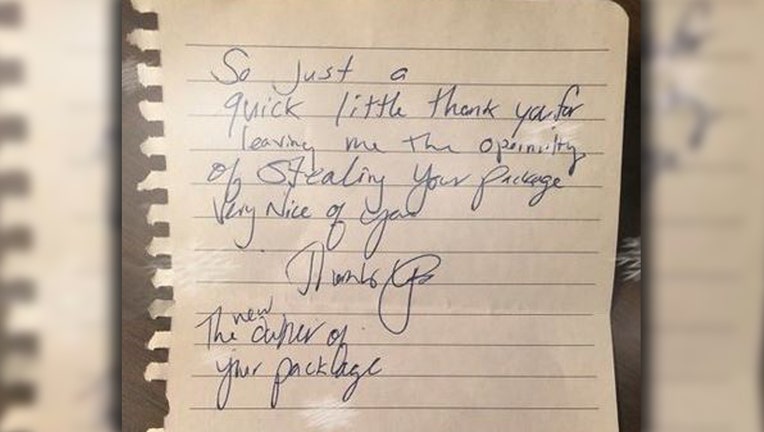 So Just a
quick little thank you for
leaving me the oppinuilty
of Stealing your package
Very Nice of you
Thanks
The new owner of
your package